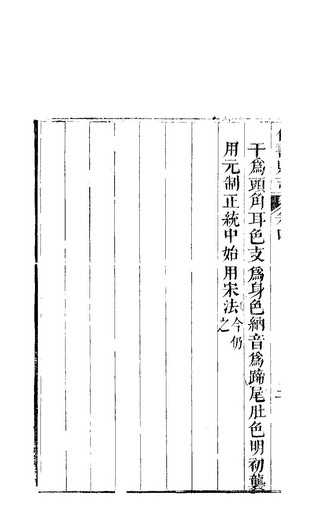 干為頭角耳色支為身色納音為蹄尾肚色明初襲
用元制正統中始用宋法今仍之